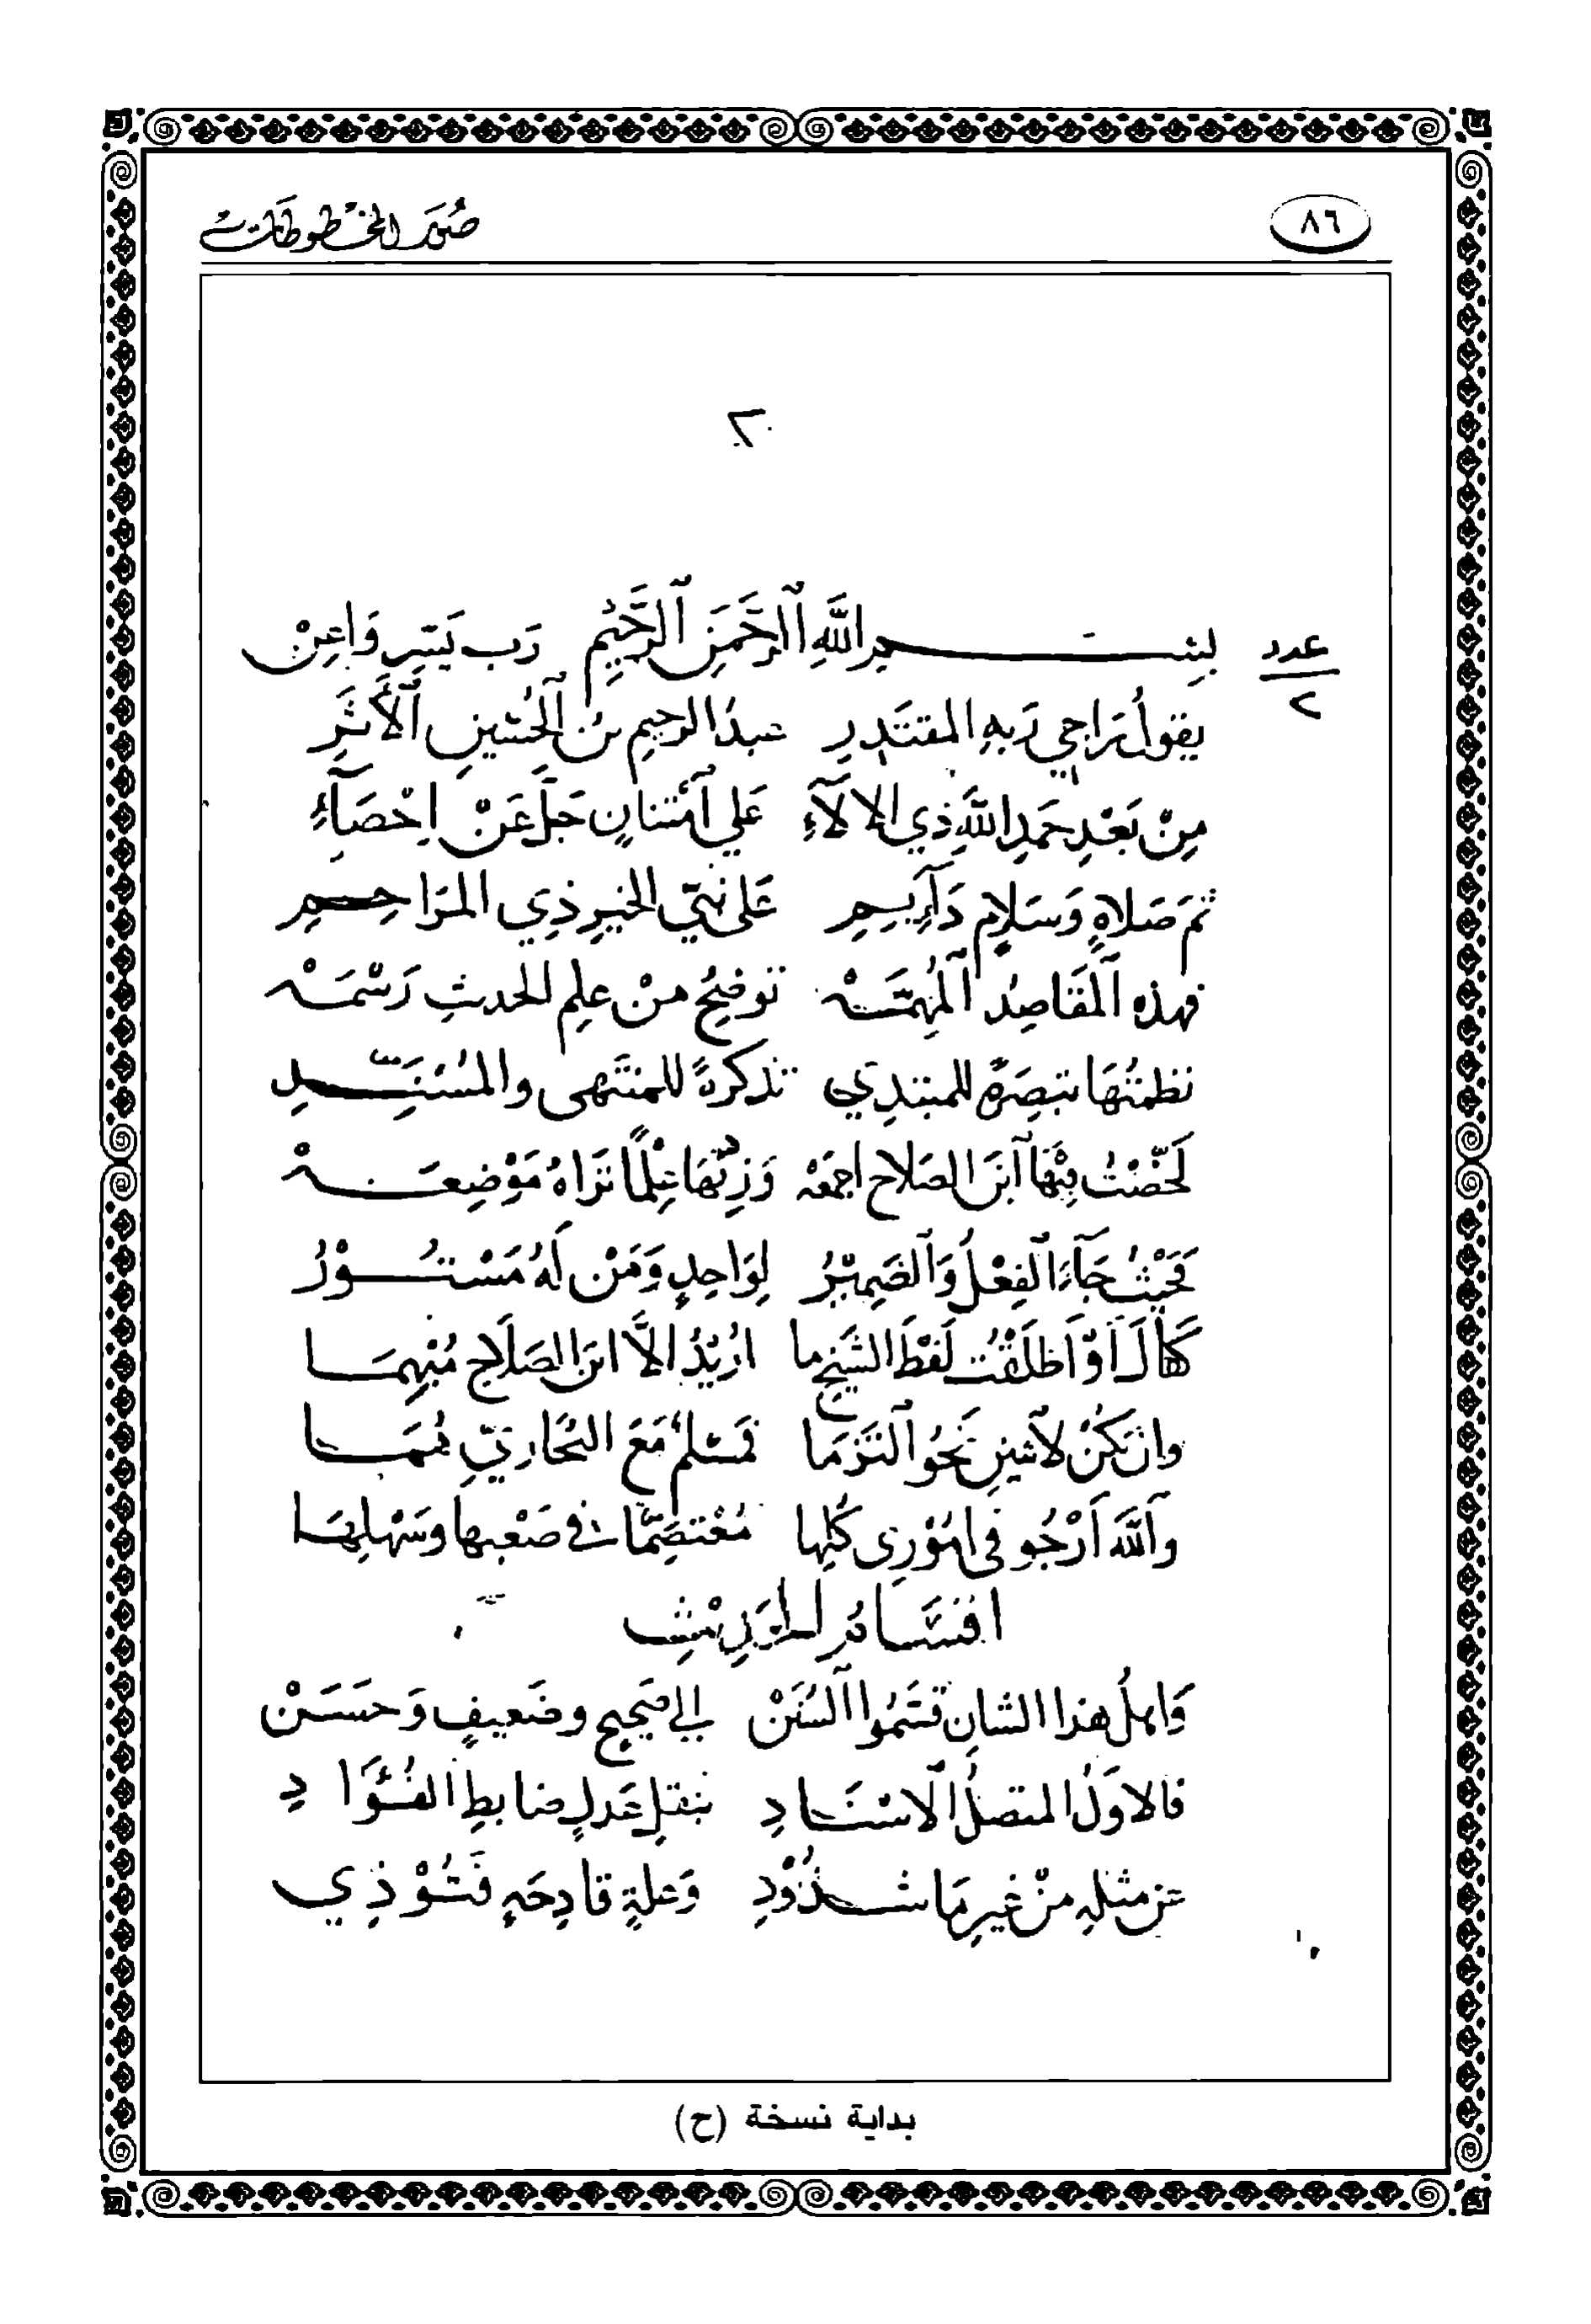 ٨٦
صُوَر المخْطُوطَات
٢
عدد
٢
بِسْمِ اللَّهِ ٱلرَّحْمَنِ ٱلرَّحِيْمِ رَب يَسِّر وَاعِنْ
يقولُ رَاجي رَبهِ المقتَدِرِ عبدُ الرحيمِ بنُ ٱلحُسَينِ ٱلأَثَرِي
مِنْ بَعْدِ حَمدِ اللَّهِ ذي الالآءِ عَلي ٱمْتنانٍ جَلَّ عَنْ احْصَآءِ
ثمَ صَلاهٍ وَسَلامٍ دَآئِمِ عَلى نبيّ الخيرِ ذِي المرَاحِمِ
فهذه ٱلمقَاصِدُ ٱلمُهِمَّهْ توضِيحُ منْ علِمِ الحديثِ رَسْمَهْ
نظمتُهَا تبصِرَةً للمبتدِي تذكرةً للمنتَهى والمسْنِدِ
لَخَّصْتُ فِيْهَا ٱبنَ الصَلاح اجمَعَهْ وَزِدْتُهَا عِلْمًا تَرَاهُ مَوْضِعَهْ
فَحَيْثُ جَآءَ الفِعْلُ وَٱلضَمِيْرُ لِوَاحِدٍ وَمَنْ لَهُ مَسْتُوْرُ
كَقَالَ أَوْ أَطلَقْتُ لَفظَ الشَيْخِ ما ارُيْدُ الاَّ ابنَ الصَلاَحِ مُبْهِمَا
وان تكُنْ لاثنينِ نَحوُ ٱلتَزَمَا فمسْلمٌ مَعَ البُخَارِيّ هُمَا
وٱللَّهَ أَرْجُو في امُوْرِي كُلِّها مُعْتصِمًا في صَعْبِها وسَهْلِهَا
اقسَامُ الحَدِيْثِ
وَاهلُ هذا الشانِ قسَّمُوا ٱلسُنَنْ الي صَحِيحٍ وضَعيفٍ وَحَسَنْ
فالاوَلُ المتصلُ ٱلاسْنَادِ بنقلِ عَدلٍ ضابطِ الفُؤَادِ
عن مثلهِ منْ غيرِ مَا شذُوْدِ وَعلةٍ قادِحَهٍ فَتُوْذِي
بداية نسخة (ح)